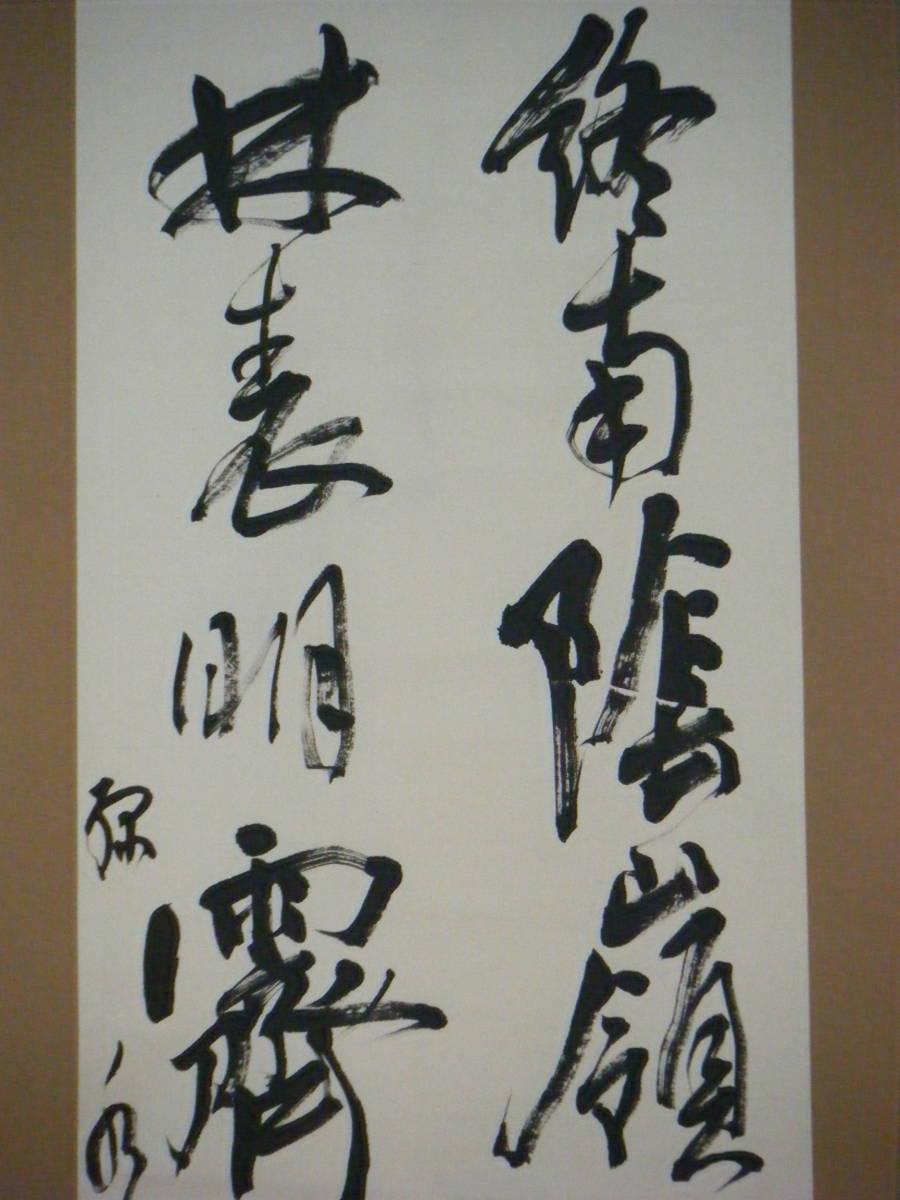 終南陰嶺
林表明霽